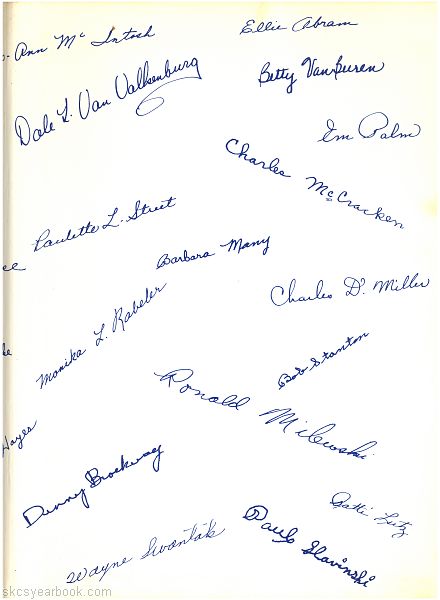 Ann Mc Intosh
Ellie Abram
Dale L. Van Valkenburg
Betty VanBuren
Em Palm
Charles McCracken
Paulette L. Street
Barbara Many
ee
Charles D. Miller
Monika L. Rabeler
Bob Stanton
Ronald Milewski
Hayes
Danny Brockway
Patti Lutz
Paul Slavinski
Wayne Swantak
skcsyearbook.com